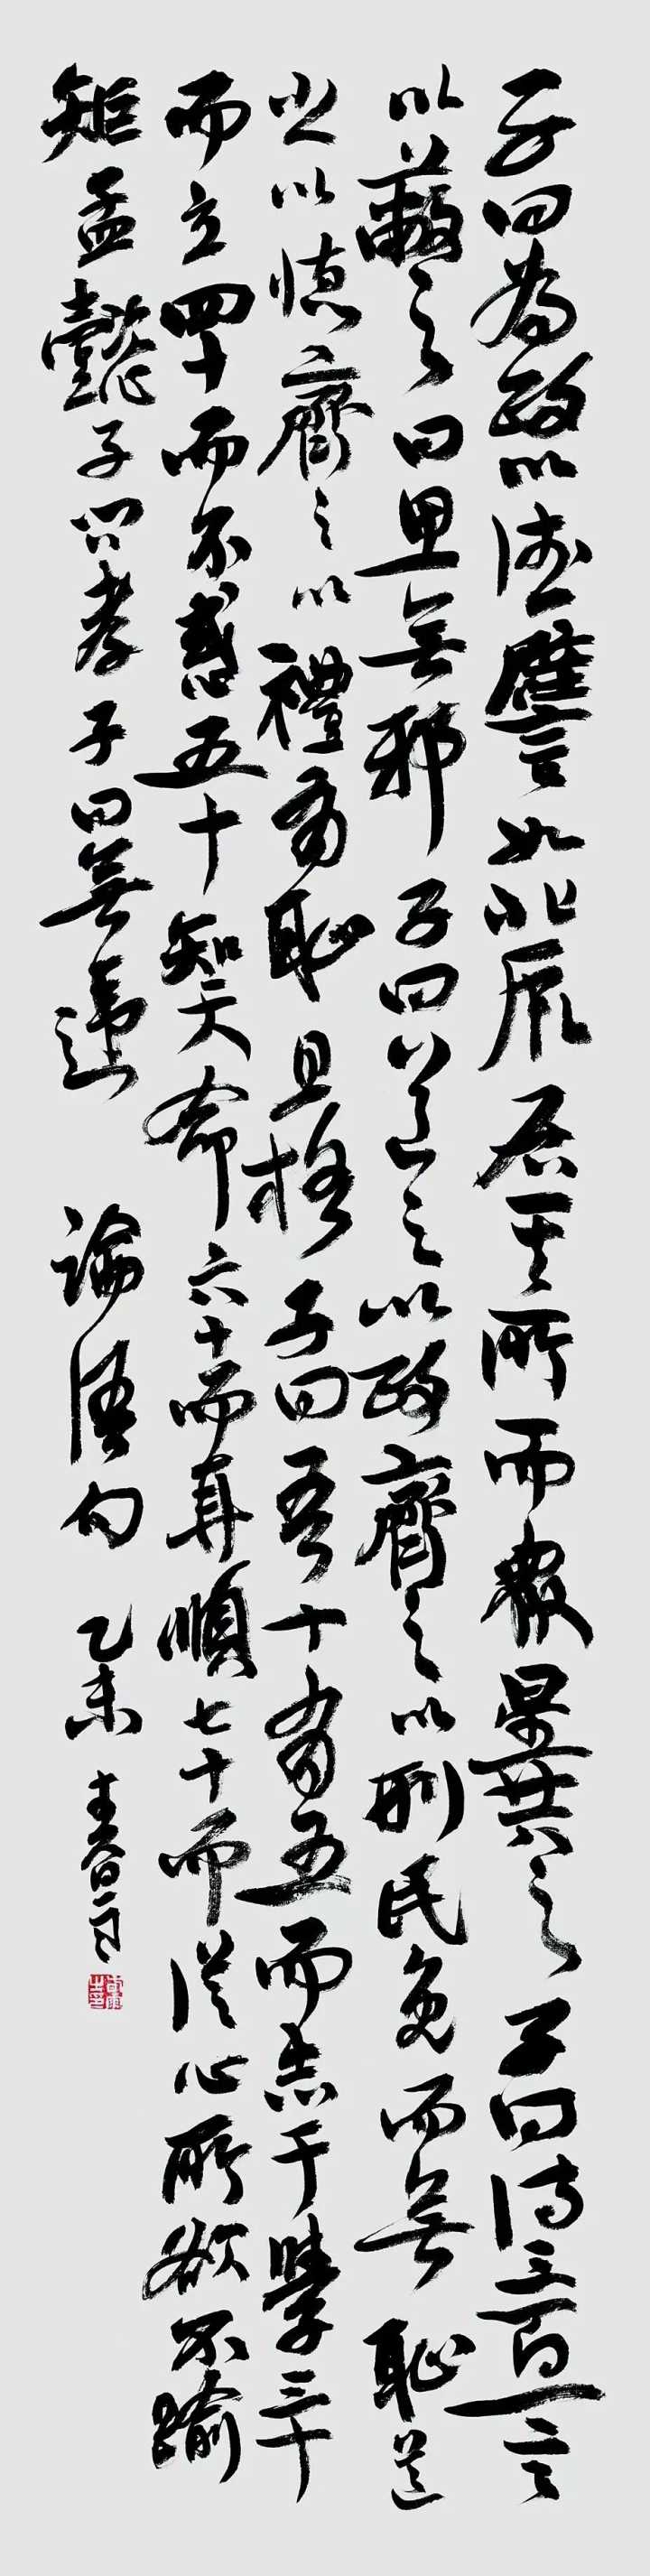 子曰為政以德譬如北辰居其所而眾星共之子曰詩三百一言
以蔽之曰思無邪子曰道之以政齊之以刑民免而無恥道
之以德齊之以禮有恥且格子曰吾十有五而志于學三十
而立四十而不惑五十知天命六十而耳順七十而從心所欲不踰
矩孟懿子問孝子曰無違 論語句 乙未